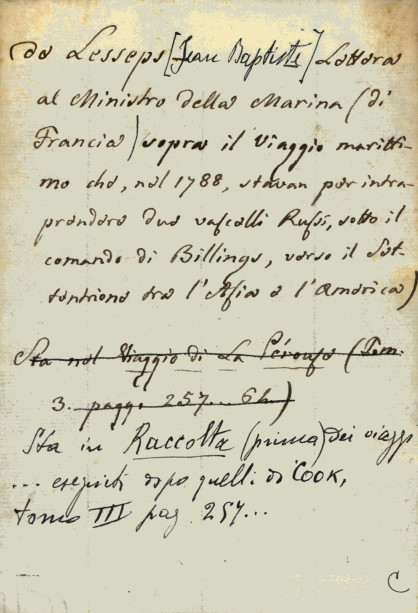 de Lesseps [Jean Baptiste] Lettera
al Ministro della Marina (di
Francia) sopra il Viaggio maritti-
mo che, nel 1788, stavan per intra-
prendere due vascelli Russi, sotto il
comando di Billings, verso il Set-
tentrione tra l'Asia e l'America)
Sta nel Viaggio di La Pérouse (Tom.
3. pagg. 257...64)
Sta in Raccolta (prima) dei viaggi
... eseguiti dopo quelli di COOK,
tomo III pag 257...
C